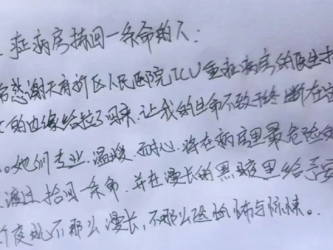 症病房捡回一条命的人:
感谢天府新区人民医院ICU重症病房的医生
的边缘给拉了回来,让我的生命不致于终断在这
。她们专业、温暖、耐心,将在病房里最危险
渡过捡回一条命,并在漫长的黑夜里给了安
夜晚不那么漫长,不那么恐怖与惊悚。